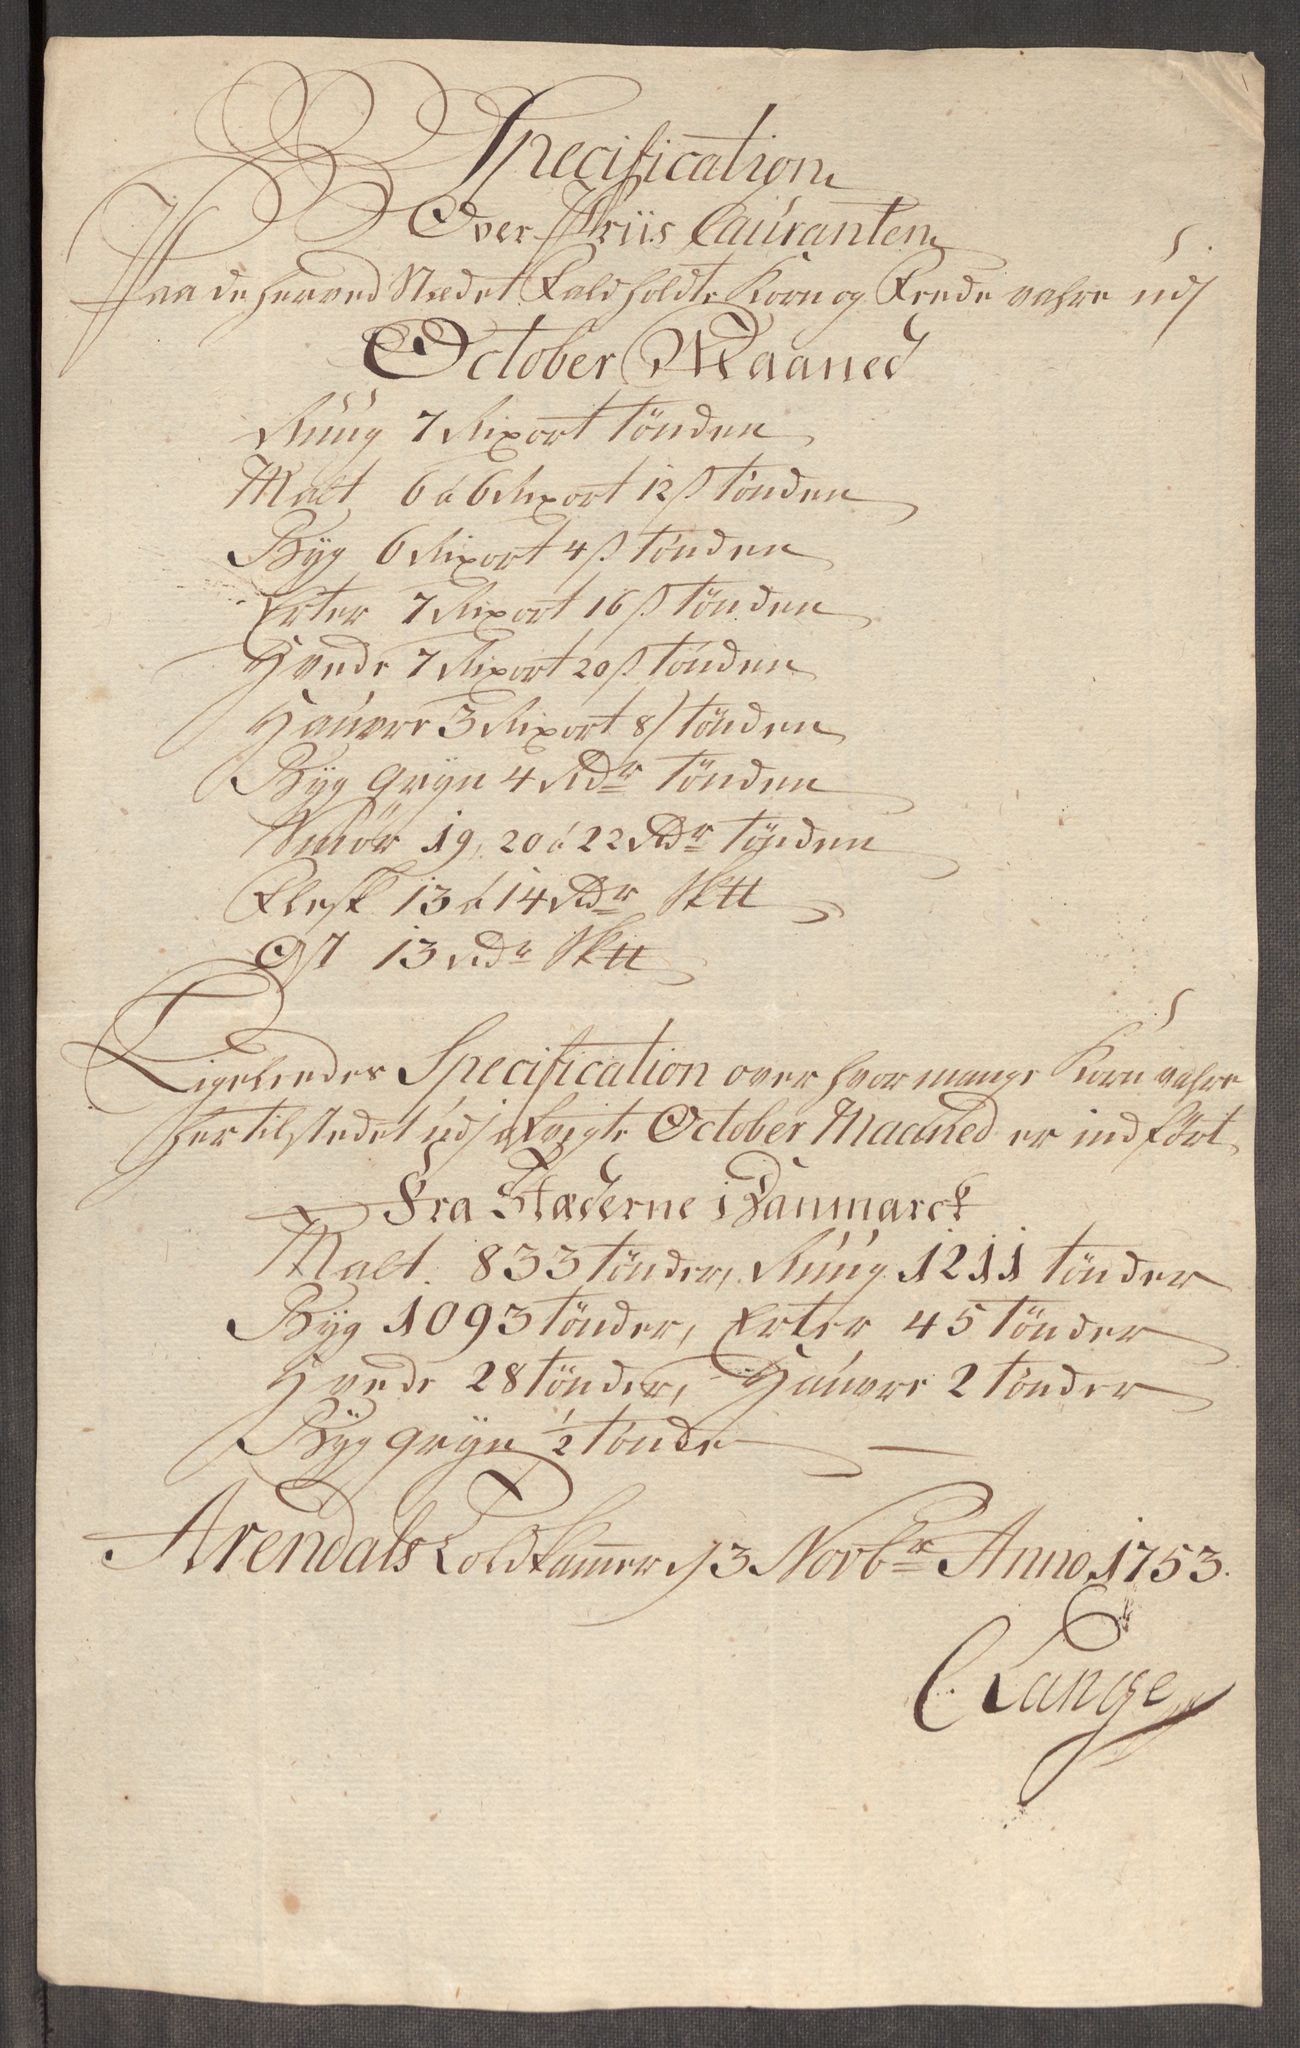 Specification
Over Priis Couranten
Paa de herved Stædet Faldholdte Korn og Fede vahre udj
October Maaned
Ruug 7 Rixort Tönden
Malt 6 á 6 Rixort 12 ß Tönden
Byg 6 Rixort 4 ß Tönden
Erter 7 Rixort 16 ß Tönden
Hvede 7 Rixort 20 ß Tönden
Hauvre 3 Rixort 8 ß Tönden
Byg Gryn 4 Rdr Tönden
Smör 19, 20 á 22 Rdr Tönden
Flesk 13 á 14 Rdr Sktt
Ost 13 Rdr Sktt
Ligeleedes Specification over hvor mange Korn vahre
hertilstedet udj October Maaned er indfört
Fra Stæderne i Danmarck
Malt 833 Tönder, Ruug 1211 Tönder
Byg 1093 Tönder, Erter 45 Tönder
Hvede 28 Tönder, Hauvre 2 Tönder
Byg gryn 1/2 Tönde
Arendals Toldkammer d 3 Novbr Anno 1753.
C Lange